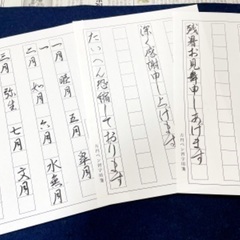 残暑お見舞申しあげます
深く感謝申し上げます
たいへん恐縮しております
一月 睦月 五月 皐月
二月 如月 六月 水無月
三月 弥生 七月 文月